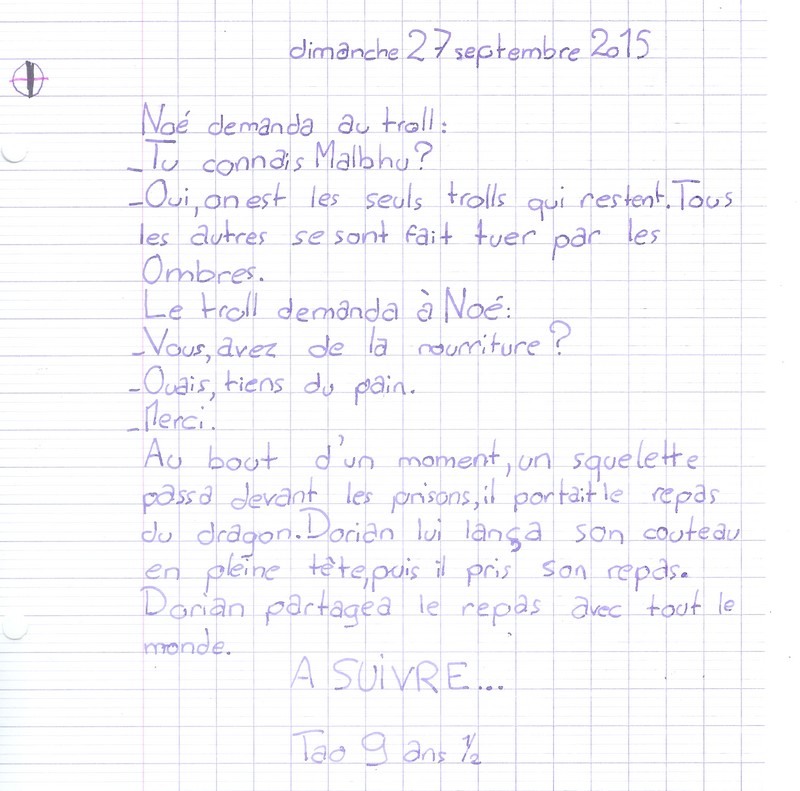 dimanche 27 septembre 2015
Noé demanda au troll:
_Tu connais Malbhu?
_Oui, on est les seuls trolls qui restent. Tous
les autres se sont fait tuer par les
Ombres.
Le troll demanda à Noé:
_Vous, avez de la nourriture?
_Ouais, tiens du pain.
_Merci.
Au bout d'un moment, un squelette
passa devant les prisons, il portait le repas
du dragon. Dorian lui lança son couteau
en pleine tête, puis il pris son repas.
Dorian partagea le repas avec tout le
monde.
A SUiVRE...
Tao 9 ans 1/2